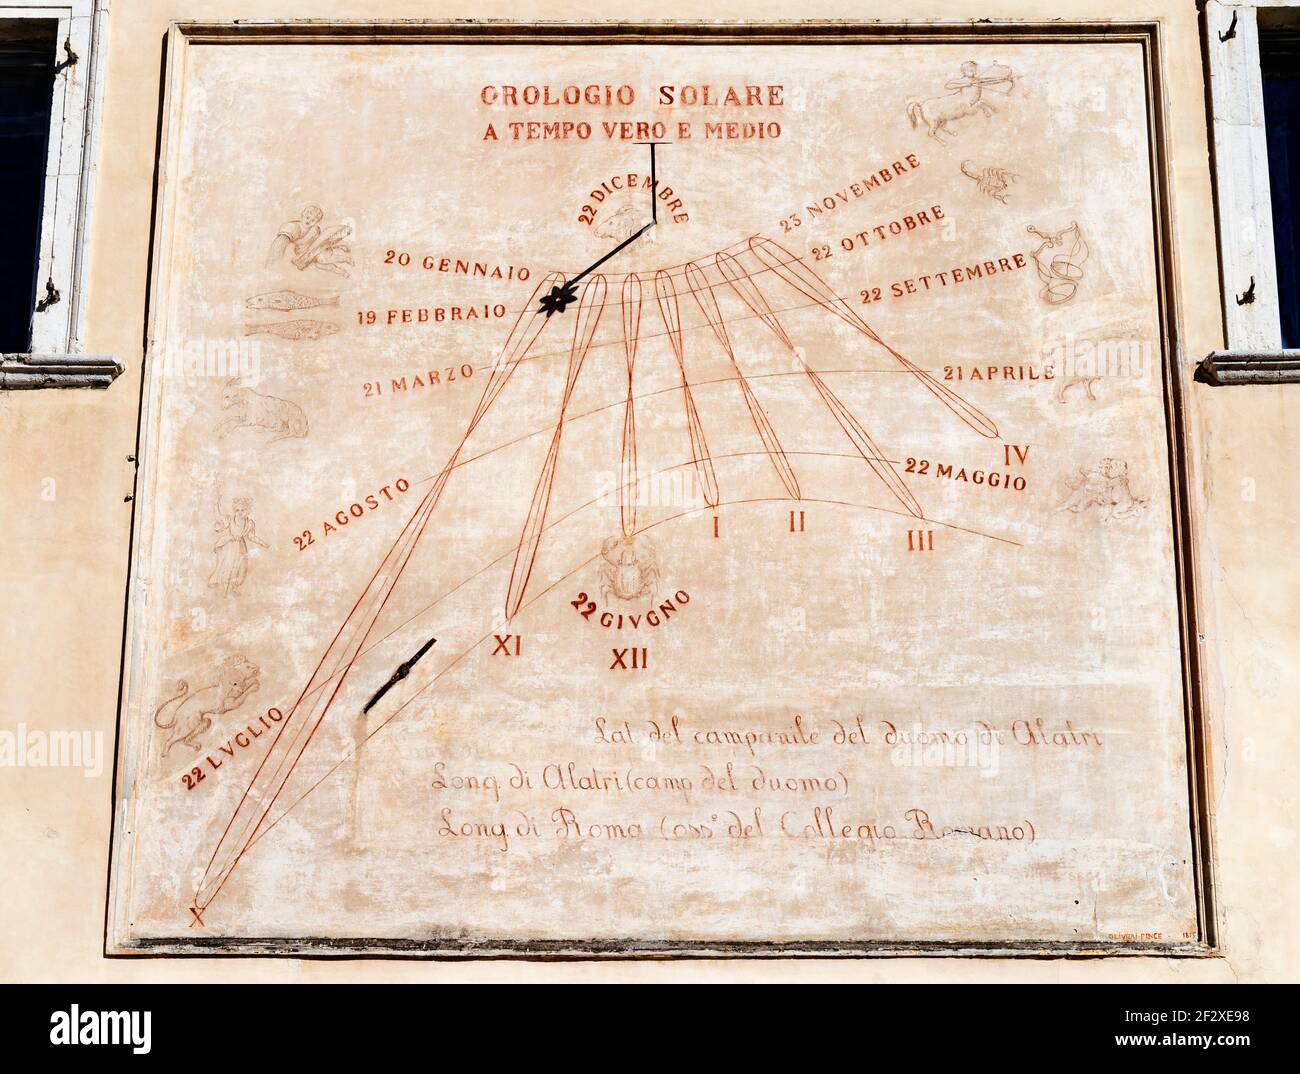 OROLOGIO SOLARE
A TEMPO VERO E MEDIO
22 DICEMBRE
23 NOVEMBRE
20 GENNAIO
22 OTTOBRE
19 FEBBRAIO
22 SETTEMBRE
21 MARZO
21 APRILE
22 AGOSTO
22 MAGGIO
22 LVGLIO
22 GIVGNO
X
XI
XII
I
II
III
IV
Lat del campanile del duomo di Alatri
Long di Alatri (camp del duomo)
Long di Roma (oss° del Collegio Romano)
a
alamy
Image ID: 2F2XE98
www.alamy.com